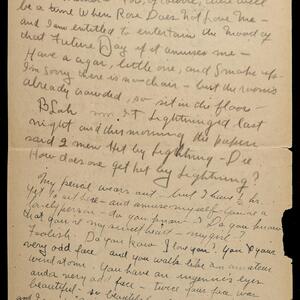 be a time When Rose Does not Love me -
and I am entitled to entertain the mood of
that Future Day if it amuses me -
Have a cigar, little one, and smoke up -
I'm sorry there is no chair - but the room's
already crowded, so sit in the floor -
Blah It Lightninged last
night and this morning the papers
said 2 men Hit by Lightning - Die
How does one get hit by Lightning?
My pencil wears out - but I have 2 hrs.
to sit here - and amuse myself. You are a
lovely person - do you know? Do you know
that you're my sweet heart - my girl?
Foolish. Do you know I love you? You &your
very odd face - and you walk like an amateur
wind storm. You have an ingenue's eyes
and a very odd face - twice your face was
beautiful - so beautiful